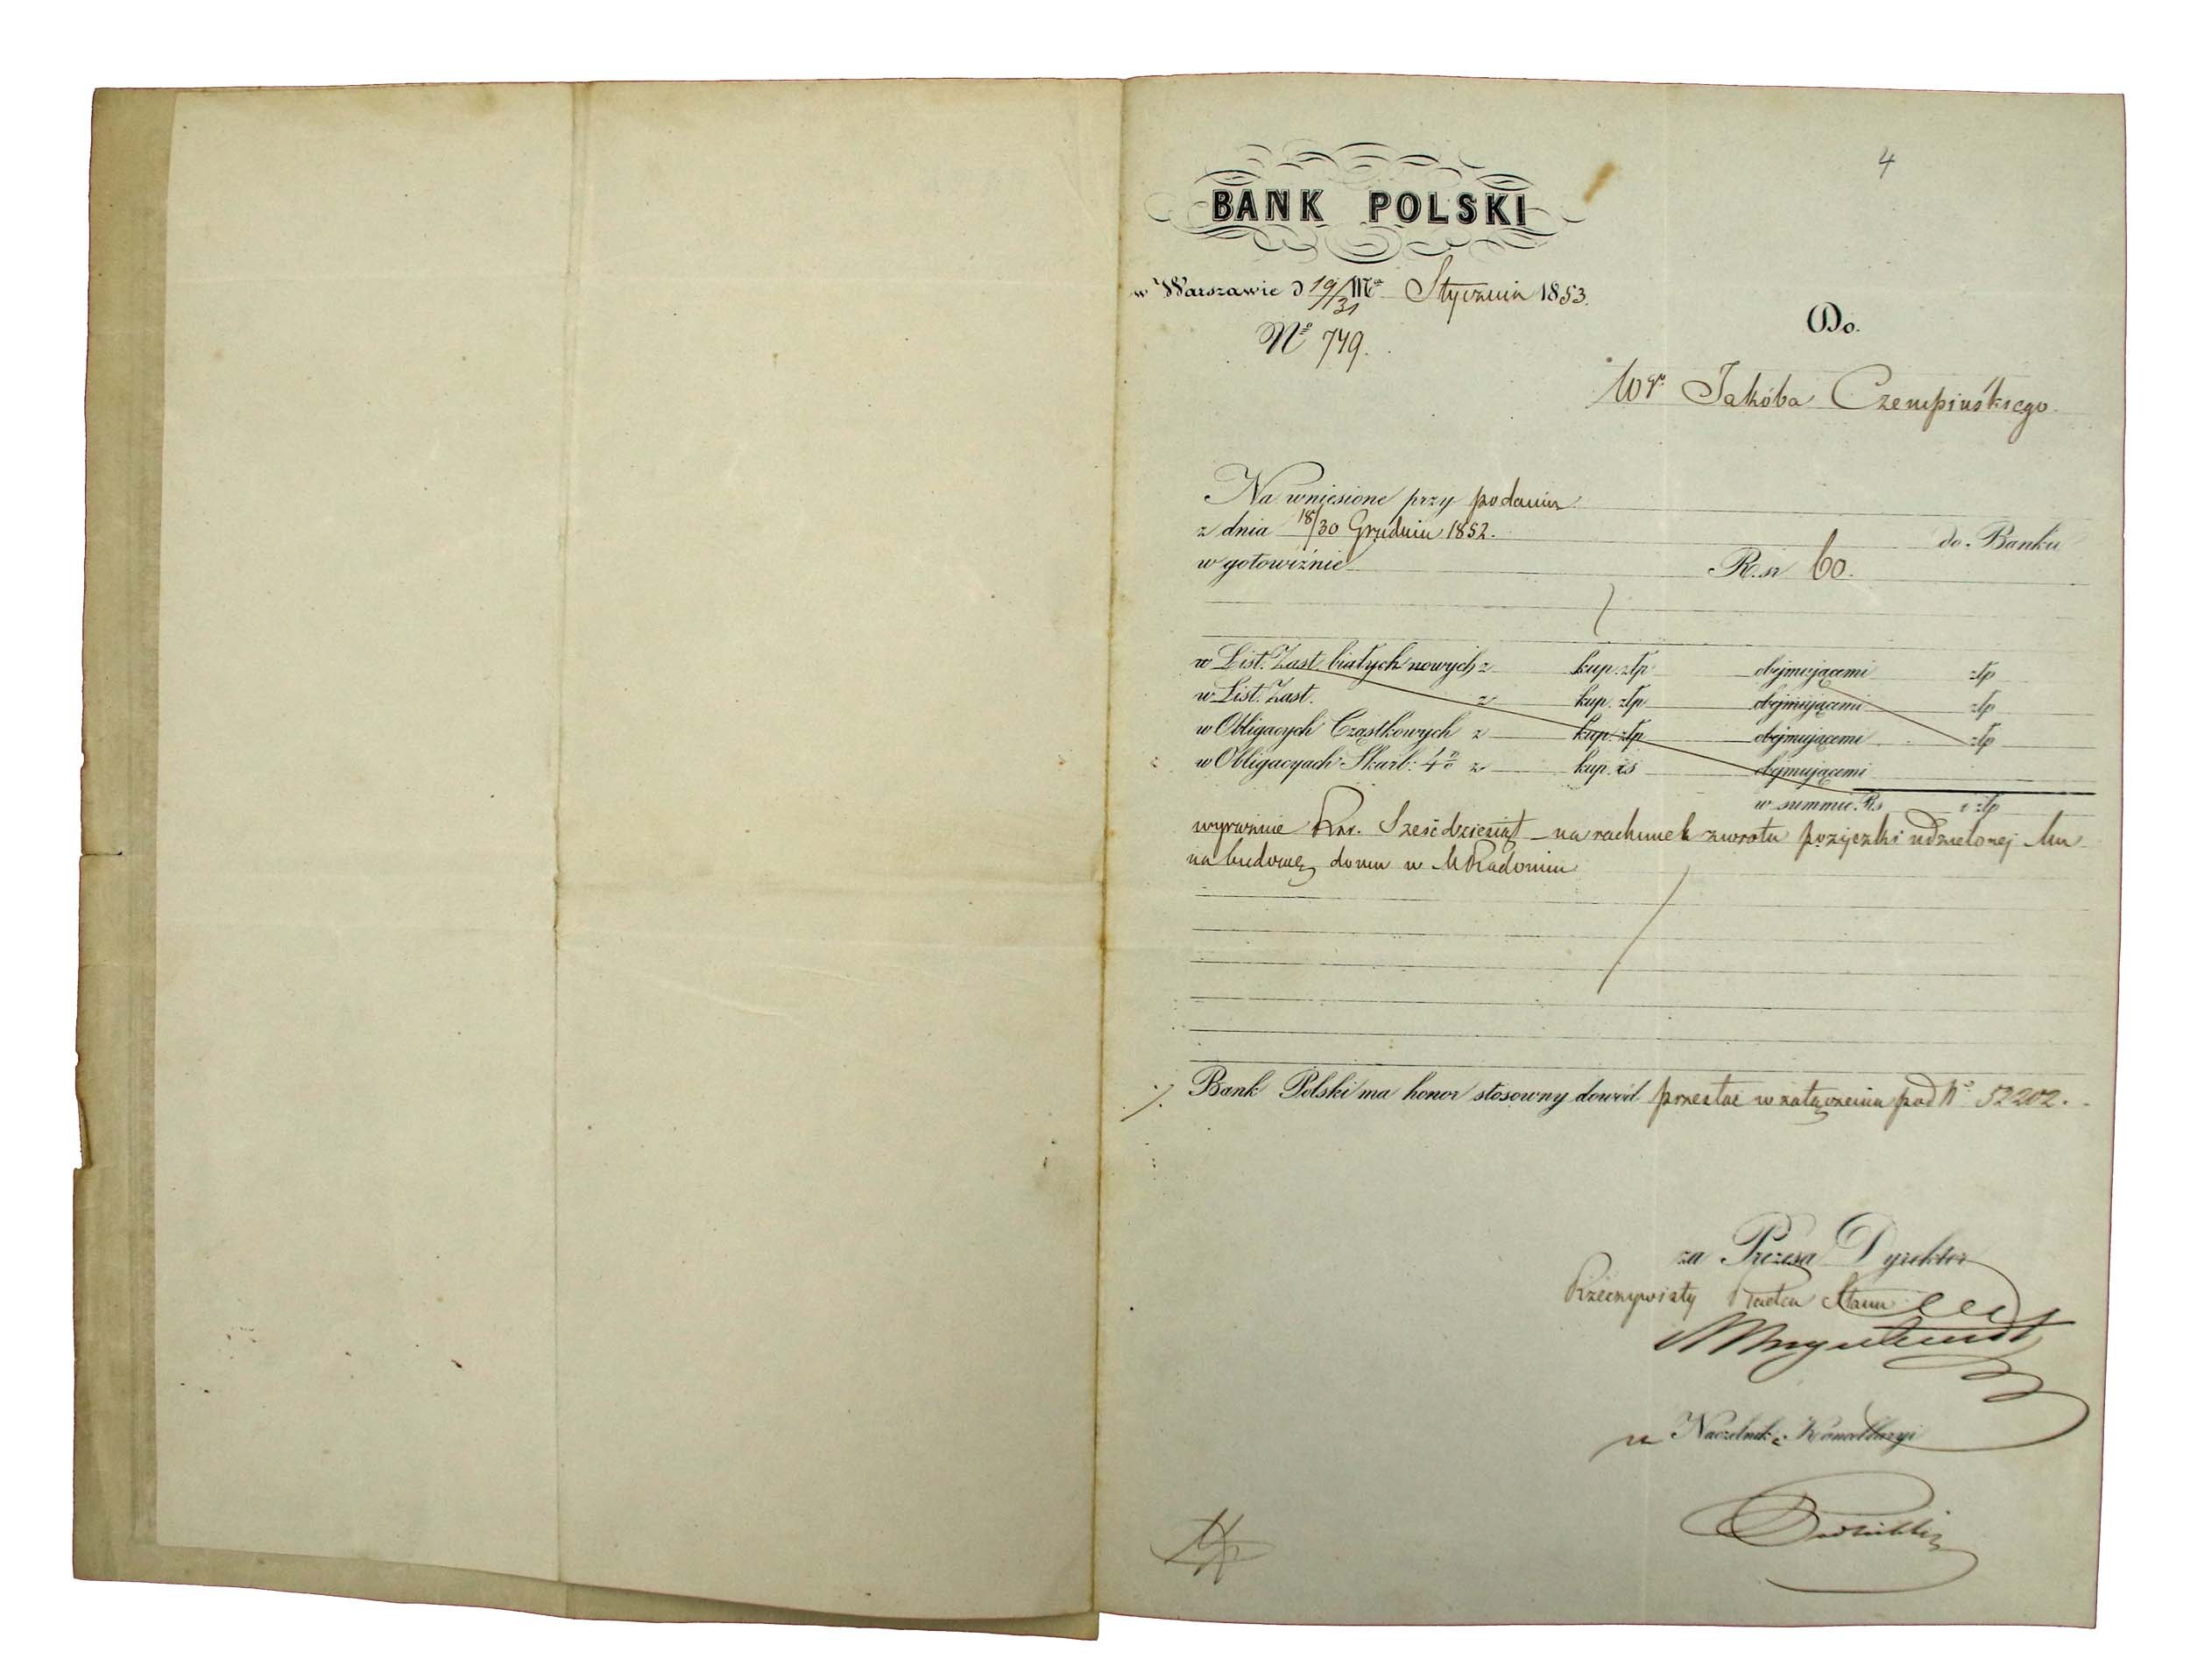 4
BANK POLSKI
w Warszawie d 19/31 Mca Stycznia 1853.
Do.
No 749.
Wgo Jakóba Czempińskiego.
Na wniesione przy podaniu
z dnia 18/30 Grudnia 1852. do Banku
w gotowiźnie R.sr 60.
w List. Zast. białych nowych z kup. złp obejmującemi złp
w List. Zast. z kup. złp obejmującemi złp
w Obligacych Cząstkowych z kup. złp obejmującemi złp
w Obligacyach Skarb: 4% z kup. rs obejmującemi
w summie Rs i złp
wyraźnie Rsr. Sześćdziesiąt na rachunek zwrotu pożyczki udzielonej Mu
na budowę domu w M Radomiu
Bank Polski ma honor stosowny dowód przesłać w załączeniu pod No 52202.
za Prezesa Dyrektor
Rzeczywisty Radca Stanu
za Naczelnik Kancellaryi